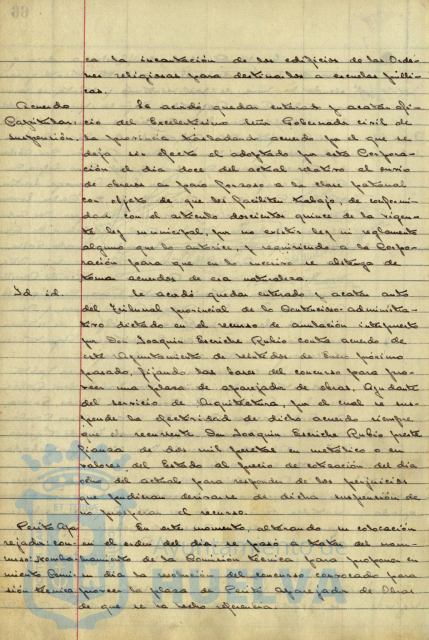 ca la incautación de los edificios de las Orde-
nes religiosas para destinarlos a escuelas públi-
cas.
Acuerdo Capitular: suspensión.
Se acordó quedar enterado y acatar ofi-
cio del Excelentísimo Señor Gobernador civil de
la provincia trasladando acuerdo por el que se
deja sin efecto el adoptado por esta Corpora-
ción el día doce del actual relativo al envío
de obreros en paro forzoso a la clase patronal
con objeto de que les faciliten trabajo, de conformi-
dad con el artículo doscientos quince de la vigente
ley municipal, por no existir ley ni reglamento
alguno que lo autorice, y requiriendo a la Corpo-
ración para que en lo sucesivo se abstenga de
tomar acuerdos de esa naturaleza.
Id id.
Se acordó quedar enterado y acatar auto
del Tribunal provincial de lo Contencioso-administra-
tivo dictado en el recurso de anulación interpuesto
por Don Joaquín Escriche Rubio contra acuerdo de
este Ayuntamiento de veintidós de Enero próximo
pasado, fijando las bases del concurso para pro-
veer una plaza de aparejador de obras, Ayudante
del servicio de Arquitectura, por el cual se sus-
pende la efectividad de dicho acuerdo siempre
que el recurrente Don Joaquín Escriche Rubio preste
fianza de dos mil pesetas en metálico o en
valores del Estado al precio de cotización del día
ocho del actual para responder de los perjuicios
que pudieran derivarse de dicha suspensión de
no prosperar el recurso.
Perito Apa-
rejador: con-
curso: nombra-
miento Comi-
sión técnica
En este momento, alterando su colocación
en el orden del día se pasó a tratar del nom-
bramiento de la Comisión técnica para proponer en
su día la resolución del concurso convocado para
proveer la plaza de Perito Aparejador de Obras
de que se ha hecho referencia.
Ayuntamiento de
HUELVA